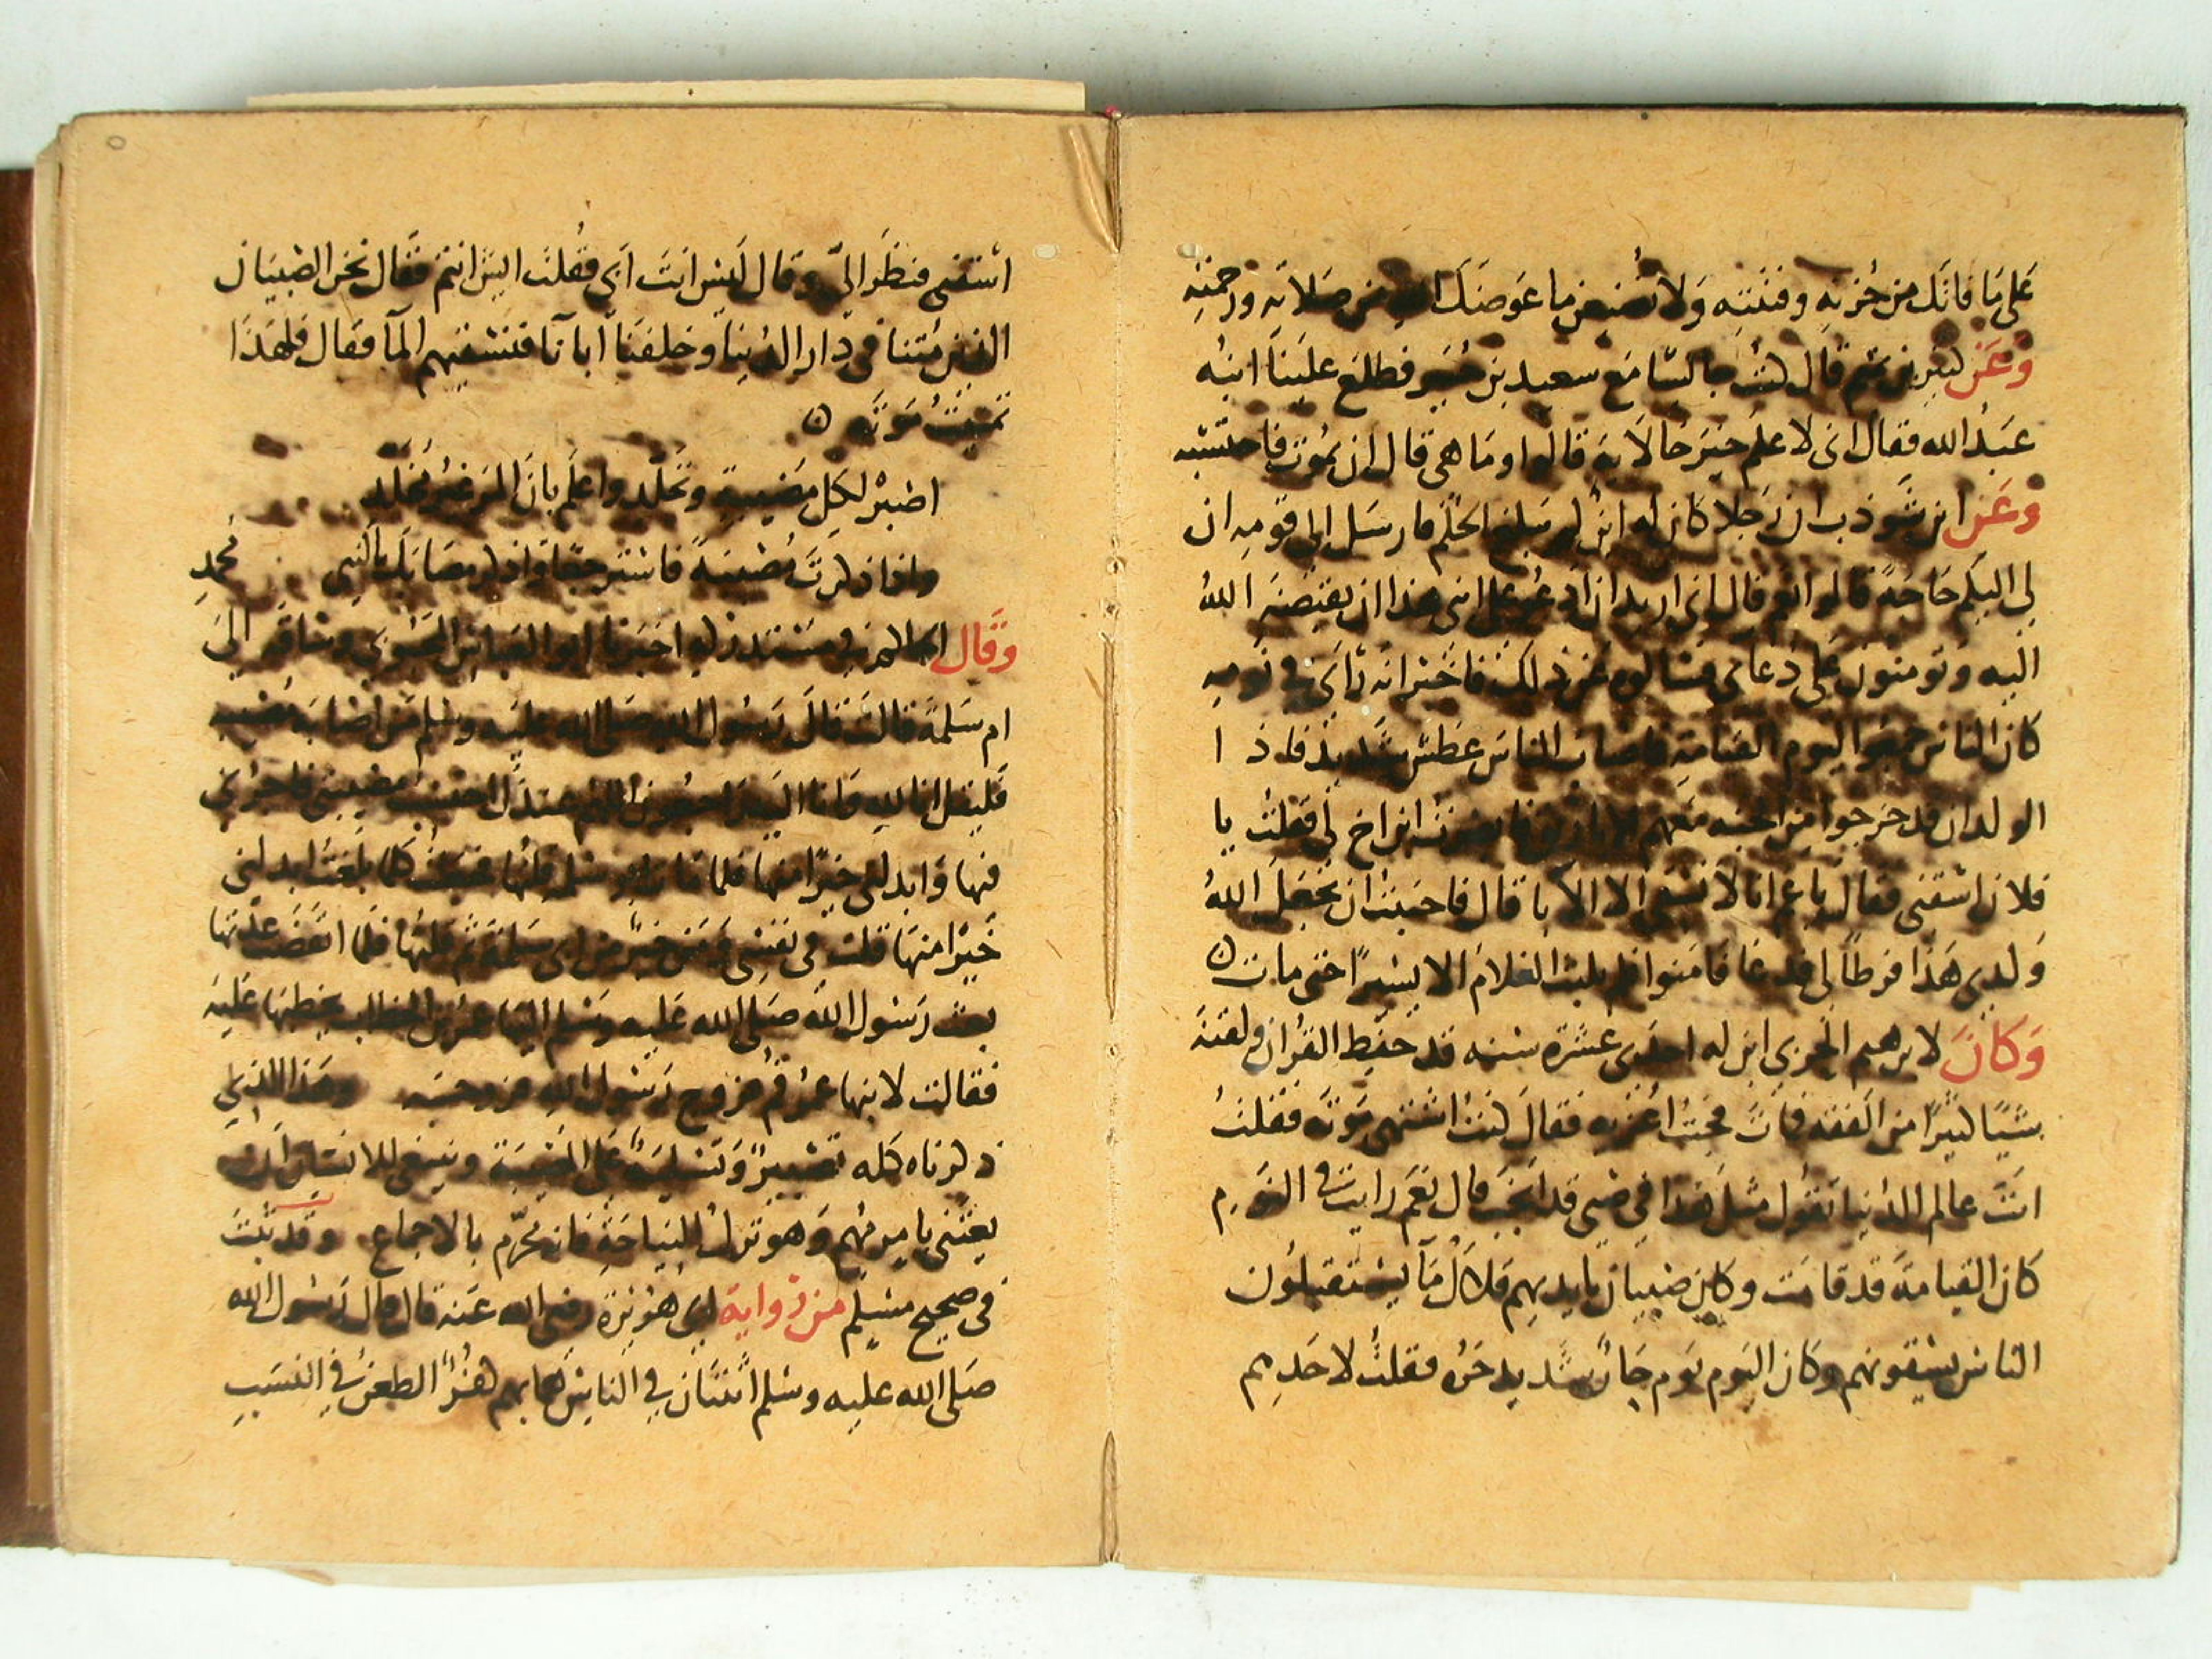 على ما فاتك من حزنه وفتنته ولا تضيعن ما عوضك الله من صلاته ورحمته
وعن كثير بن تميم قال كنت جالسا مع سعيد بن جبير فطلع علينا ابنه
عبد الله فقال انى لا علم خير حالاته قالوا وما هى قال ان يموت فاحتسبه
وعن ابن شوذب ان رجلا كان له ابن لم يبلغ الحلم فارسل الى قومه ان
لى اليكم حاجة قالوا نعم قال انى اريد ان ادعو على ابنى هذا ان يقبضه الله
اليه وتومنون على دعاى فسالوه عن ذلك فاخبر انه راى فى نومه
كان الناس جمعوا اليوم القيامة فاصاب الناس عطش شديد فاذ ا
الولدان قد خرجوا من الجنه معهم الاباريق فابصرت ابن اخ لى فقلت يا
فلان اسقنى فقال يا عم انا لا نسقى الا الابا قال فاحببت ان يجعل الله
ولدى هذا فرطا لى فدعا فامنوا فلم يلبث الغلام الا يسيرا حتى مات
وكان لابرهيم الحربى ابن له احدى عشرة سنه قد حفظ القران ولقنه
شيا كثيرا من الفقه فمات فجيت اعزيه فقال كنت اشتهى موته فقلت
انت عالم الدنيا تقول مثل هذا فى صبى قد انجب قال نعم رايت فى النوم
كان القيامة قد قامت وكان صبيان بايديهم قلال ما يستقبلون
الناس يسقونهم وكان اليوم يوم حار شديد حره فقلت لاحدهم
اسقنى فنظر الى وقال ليس انت ابى فقلت ايش انتم فقال نحن الصبيان
الذين متنا فى دار الدنيا وخلفنا اباءنا فنسقيهم الما فقال فلهذا
تمنيت موته
اصبر لكل مصيبة وتجلد واعلم بان المر غير مخلد
واذا ذكرت مصيبة فاذكر مصابك بالنبى محمد
وقال الحاكم فى مستدركه اخبرنا ابو العباس وساقه الى
ام سلمة قالت قال رسول الله صلى الله عليه وسلم من اصابه مصيبه
فليقل انا لله وانا اليه راجعون اللهم عندك احتسب مصيبتى فاجرنى
فيها وابدلنى خيرا منها فلما مات ابو سلمة قلتها فجعلت كلما بلغت ابدلنى
خيرا منها قلت فى نفسى ومن خير من ابى سلمة ثم قلتها فلما انقضت عدتها
بعث رسول الله صلى الله عليه وسلم اليها عمر بن الخطاب يخطبها عليه
فقالت لابنها عمر قم فزوج رسول الله فزوجه وهذا الذى
ذكرناه كله تصبير وتسلية على المصيبة وينبغى للانسان ان
يعتنى بامر مهم وهو ترك النياحة فانه محرم بالاجماع وقد ثبت
فى صحيح مسلم من رواية ابى هريرة رضى الله عنه قال قال رسول الله
صلى الله عليه وسلم اثنتان فى الناس هما بهم كفر الطعن فى النسب